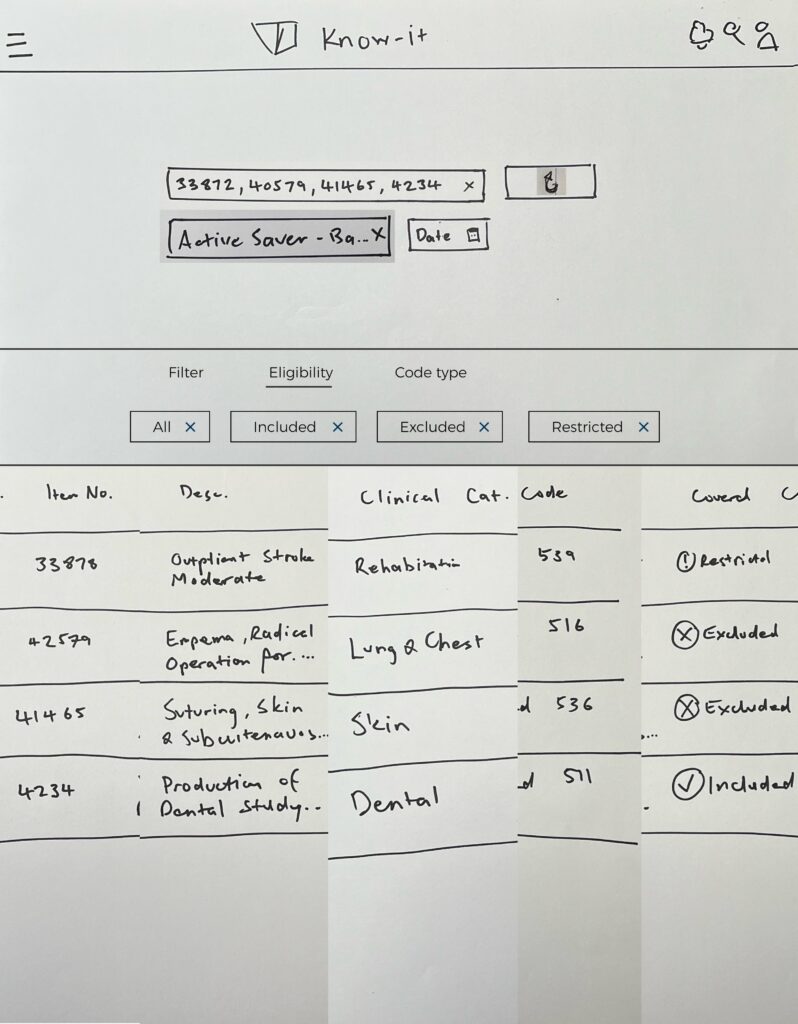 Know-it
33872, 40579, 41465, 4234 ×
Active Saver - Ba... X
Date
Filter Eligibility Code type
All × Included × Excluded × Restricted ×
Item No. Desc. Clinical Cat. Code Coverd C
33878 Outptient Stroke Rehabitatin 539 Restrictd
Moderate
42579 Empema, Radical Lung & Chest 516 Excluded
Operation for....
41465 Suturing, Skin Skin d 536 Excluded
& Subcuitenavos...
4234 Production of Dental d 511 Included
Dental Study..